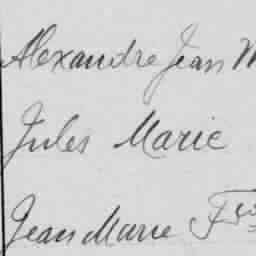 Alexandre Jean M
Jules Marie
Jean Marie Fs